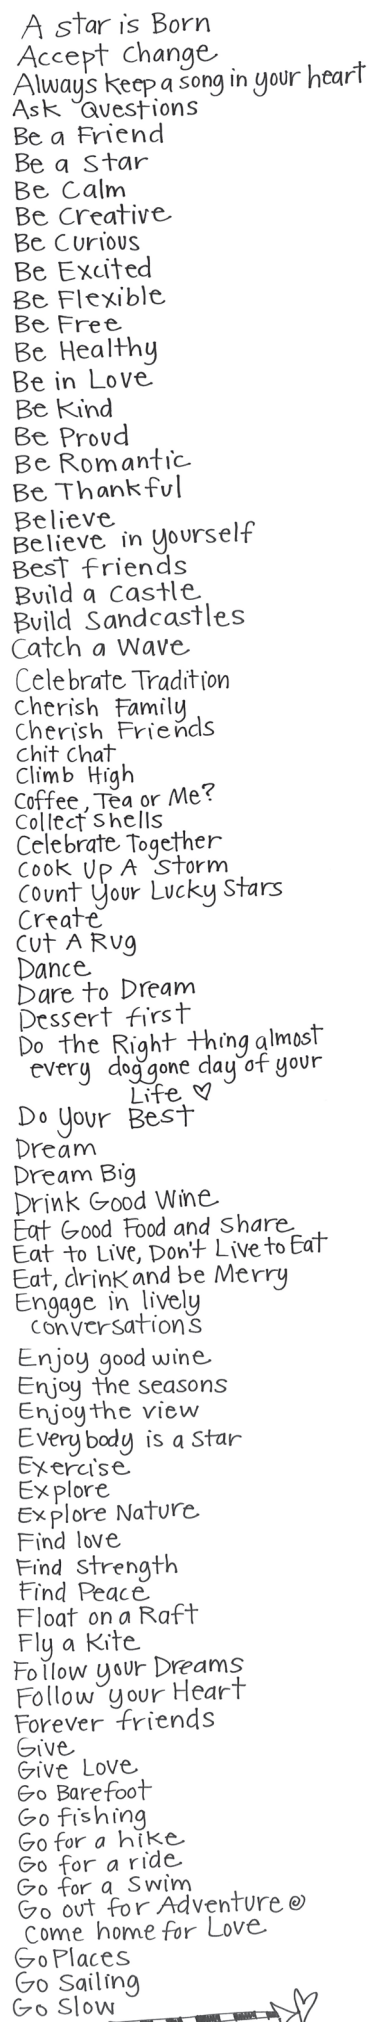 A star is Born
Accept Change
Always keep a song in your heart
Ask Questions
Be a Friend
Be a Star
Be Calm
Be Creative
Be Curious
Be Excited
Be Flexible
Be Free
Be Healthy
Be in Love
Be Kind
Be Proud
Be Romantic
Be Thankful
Believe
Believe in yourself
Best friends
Build a Castle
Build Sandcastles
Catch a Wave
Celebrate Tradition
Cherish Family
Cherish Friends
Chit Chat
Climb High
Coffee, Tea or Me?
Collect Shells
Celebrate Together
Cook Up A Storm
Count Your Lucky Stars
Create
Cut A Rug
Dance
Dare to Dream
Dessert first
Do the Right thing almost
every doggone day of your
Life ♡
Do Your Best
Dream
Dream Big
Drink Good Wine
Eat Good Food and Share
Eat to Live, Don't Live to Eat
Eat, drink and be Merry
Engage in lively
conversations
Enjoy good wine
Enjoy the seasons
Enjoy the view
Everybody is a Star
Exercise
Explore
Explore Nature
Find love
Find Strength
Find Peace
Float on a Raft
Fly a Kite
Follow your Dreams
Follow your Heart
Forever friends
Give
Give Love
Go Barefoot
Go fishing
Go for a hike
Go for a ride
Go for a Swim
Go out for Adventure
Come home for Love
Go Places
Go Sailing
Go Slow